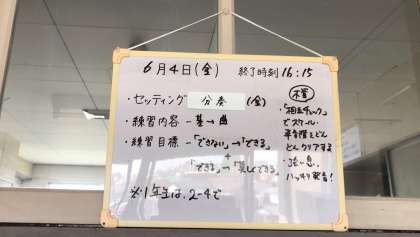 6月4日(金) 終了時刻16:15
・セッティング 分奏 (金)
・練習内容 - 基→曲
・練習目標 - 「できない」→「できる」
+
「できる」→「美しくできる」
※1年生は、2-4で
木管
・「相互チェック」
でスケール
どん クリアする
・強い息、
ハッキリ発音!